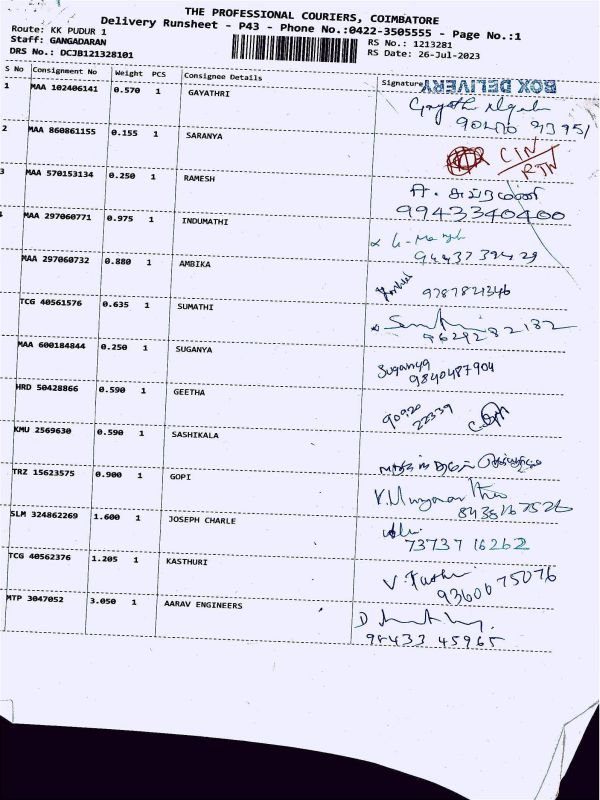 THE PROFESSIONAL COURIERS, COIMBATORE
Delivery Runsheet - P43 - Phone No.:0422-3505555 - Page No.:1
Route: KK PUDUR 1
Staff: GANGADARAN RS No.: 1213281
DRS No.: DCJB121328101 RS Date: 26-Jul-2023
S No Consignment No Weight PCS Consignee Details Signature BOX DELIVERY
1 MAA 102406141 0.570 1 GAYATHRI
2 MAA 860861155 0.155 1 SARANYA CIN/RTN
3 MAA 570153134 0.250 1 RAMESH
9943340400
4 MAA 297060771 0.975 1 INDUMATHI
9443739429
MAA 297060732 0.880 1 AMBIKA
9787821346
TCG 40561576 0.635 1 SUMATHI
9629282132
MAA 600184844 0.250 1 SUGANYA Suganya
9840487904
HRD 50428866 0.590 1 GEETHA 90920
22339
KMU 2569630 0.590 1 SASHIKALA
TRZ 15623575 0.900 1 GOPI
8438167526
SLM 324862269 1.600 1 JOSEPH CHARLE
73737 16262
TCG 40562376 1.205 1 KASTHURI
9360075076
MTP 3047052 3.050 1 AARAV ENGINEERS
98433 45965